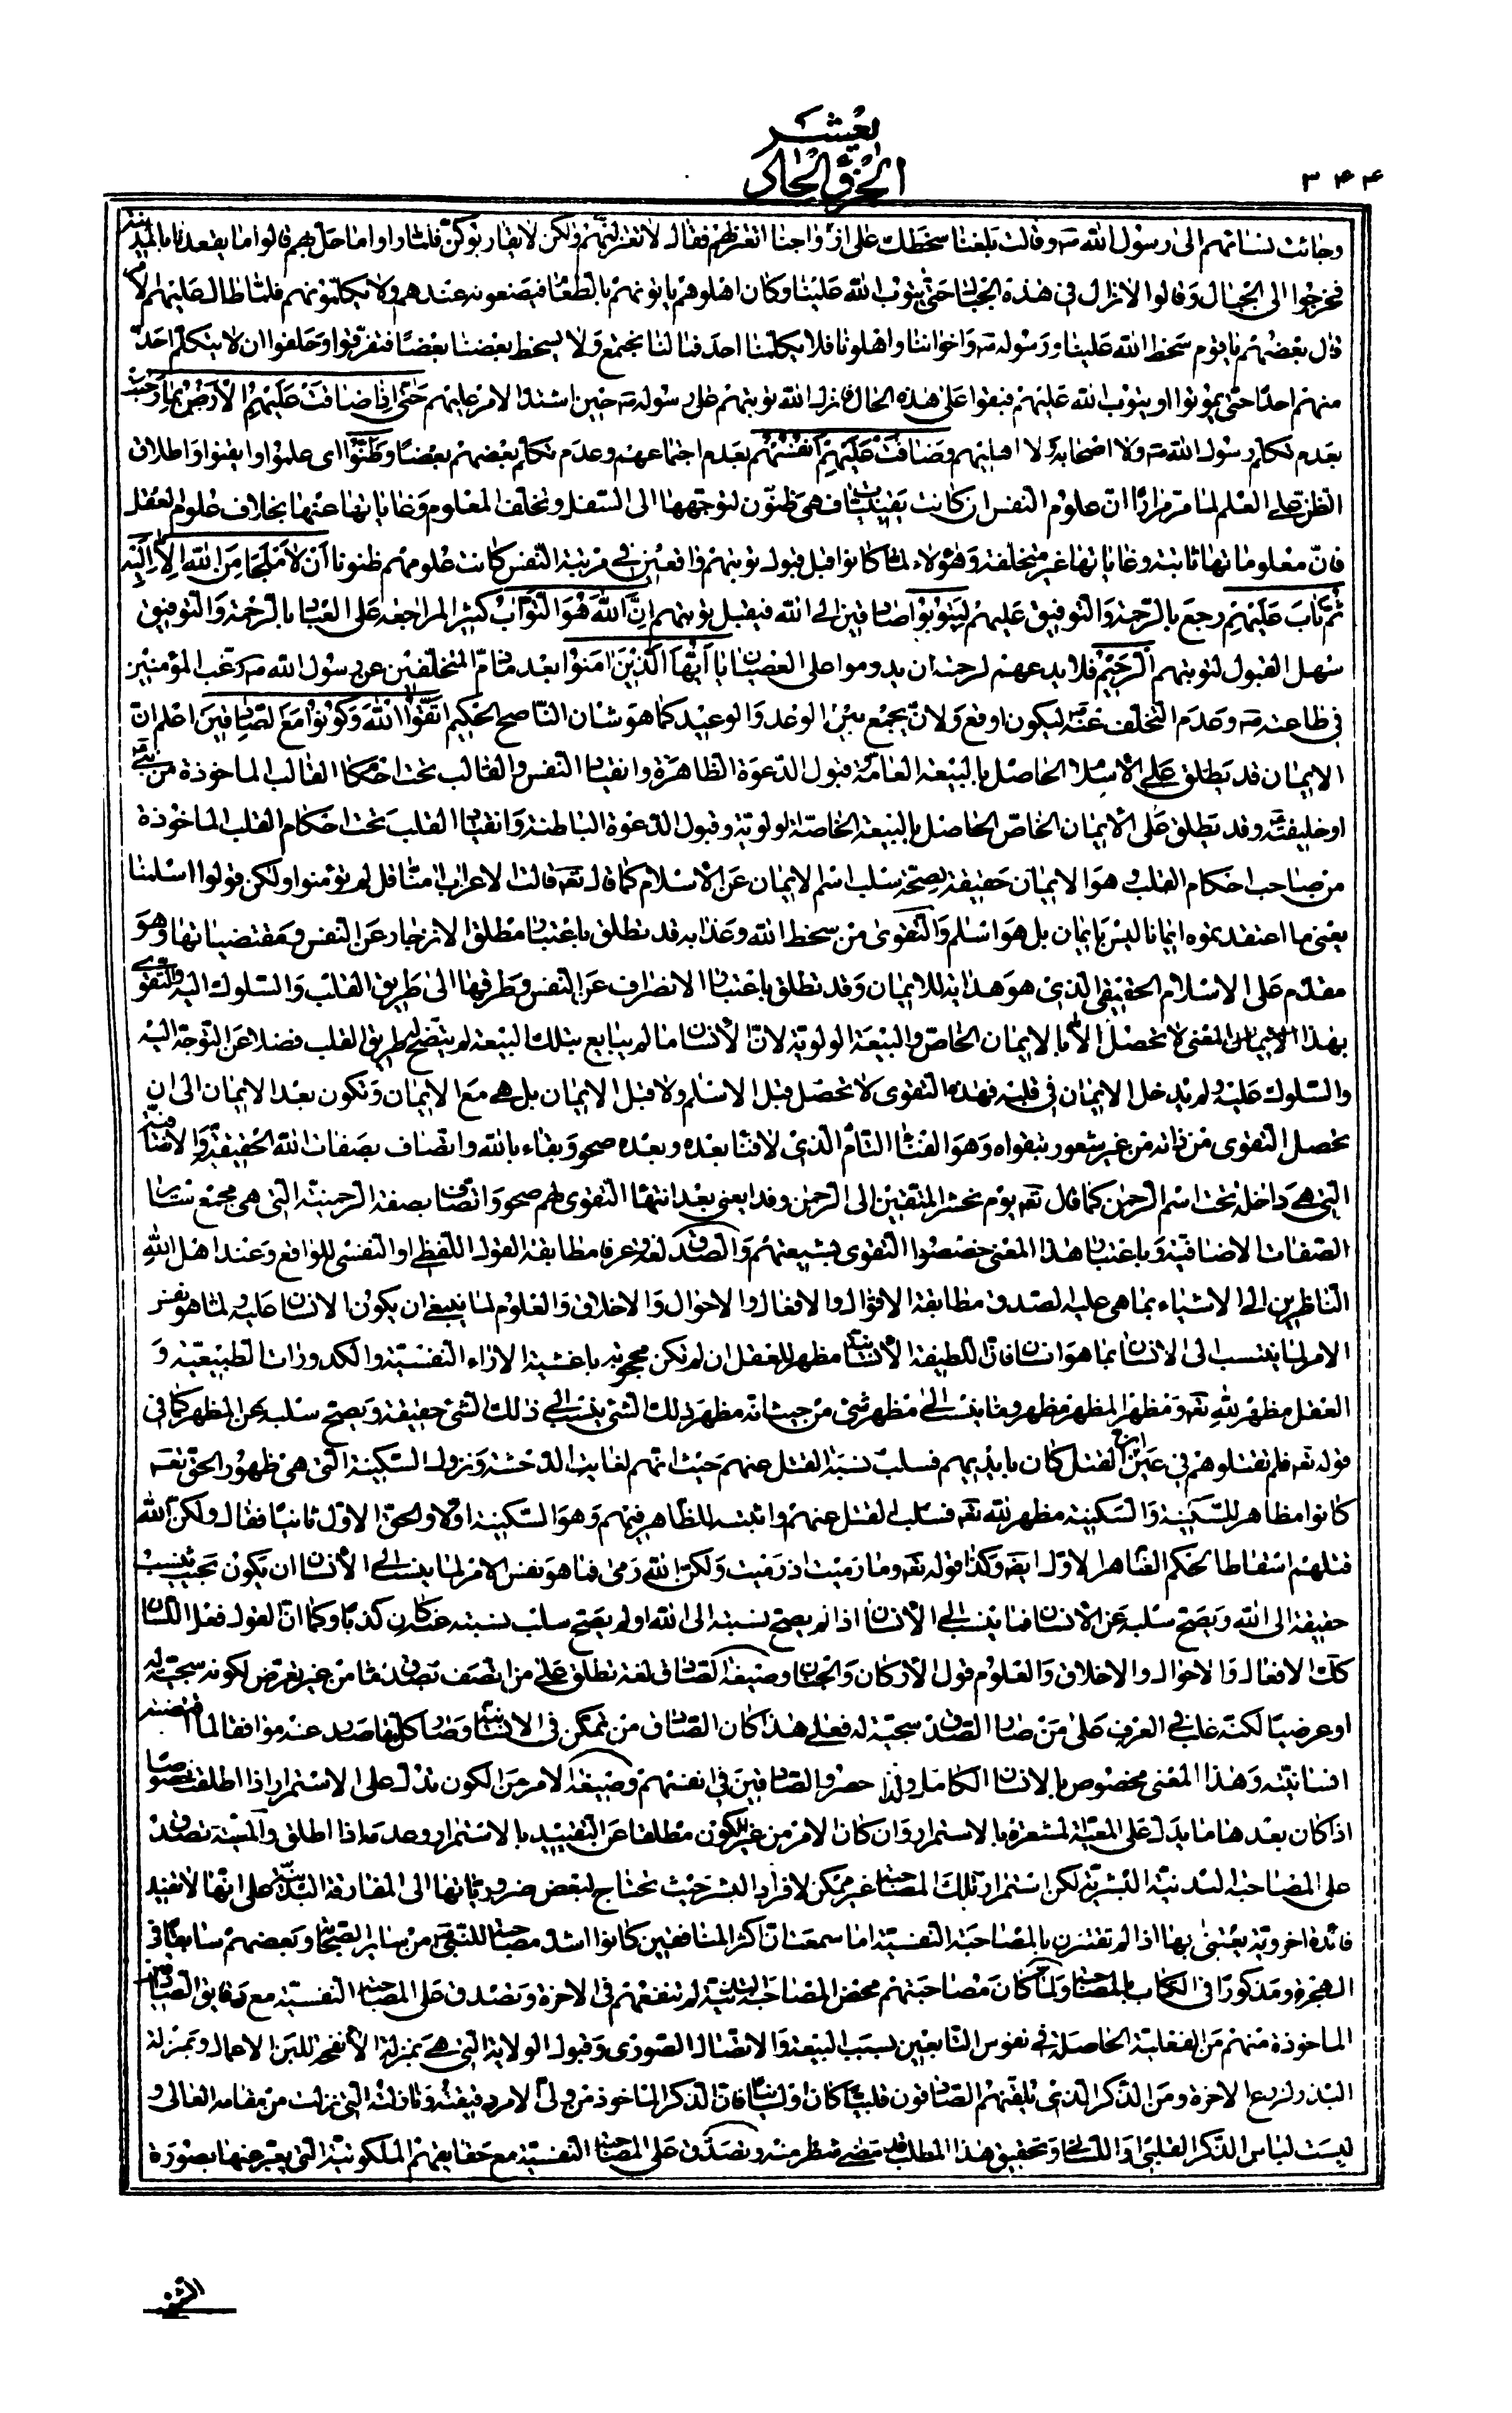 ٣٤٤
الجزء الحادى
عشر
وجائت نسائهم الى رسول الله ص وقالت بلغنا سخطك على ازواجنا افنعتزلهم فقال لا تعتزلنهم ولكن لا يقاربوكن فلما راوا ما حل بهم قالوا ما يقعدنا بالمدينة
فخرجوا الى الجبال وقالوا لا نزال فى هذه الجبال حتى يتوب الله علينا وكان اهلوهم يأتونهم بالطعام فيضعونه عندهم ولا يكلمونهم فلما طال عليهم الامر
قال بعضهم يا قوم سخط الله علينا ورسوله ص واخواننا واهلونا فلا يكلمنا احد فما لنا نجتمع ولا يسخط بعضنا بعضا فتفرقوا وحلفوا ان لا يتكلم احد
منهم احدا حتى يموتوا او يتوب الله عليهم فبقوا على هذه الحال فانزل الله توبتهم على رسوله ص حين اشتد الامر عليهم حتى اذا ضاقت عليهم الارض بما رحبت
بعدم تكلم رسول الله ص ولا اصحابه ولا اهاليهم وضاقت عليهم انفسهم بعدم اجتماعهم وعدم تكلم بعضهم بعضا وظنوا اى علموا وايقنوا واطلاق
الظن على العلم لما مر مرارا ان علوم النفس ان كانت يقينيات فهى ظنون لتوجهها الى السفل وتخلف المعلوم وغاياتها عنها بخلاف علوم العقل
فان معلوماتها ثابتة وغاياتها غير متخلفة وهؤلاء لما كانوا قبل قبول توبتهم واقعين فى مرتبة النفس كانت علومهم ظنونا ان لا ملجأ من الله الا اليه
ثم تاب عليهم رجع بالرحمة والتوفيق عليهم ليتوبوا صادقين الى الله فيقبل توبتهم ان الله هو التواب كثير المراجعة على العباد بالرحمة والتوفيق
سهل القبول لتوبتهم الرحيم فلا يدعهم لرحمته ان يدوموا على العصيان يا ايها الذين امنوا بعد ما ذم المتخلفين عن رسول الله ص رغب المؤمنين
فى طاعته ص وعدم التخلف عنه ليكون اوقع ولان يجمع بين الوعد والوعيد كما هو شان الناصح الحكيم اتقوا الله وكونوا مع الصادقين اعلم ان
الايمان قد يطلق على الاسلام الحاصل بالبيعة العامة وقبول الدعوة الظاهرة وانقياد النفس والقالب تحت احكام القالب الماخوذة من نبى
او خليفته وقد يطلق على الايمان الخاص الحاصل بالبيعة الخاصة الولوية وقبول الدعوة الباطنة وانقياد القلب تحت احكام القلب الماخوذة
من صاحب احكام القلب وهو الايمان حقيقة لصحة سلب اسم الايمان عن الاسلام كما قال تعه قالت الاعراب امنا قل لم تؤمنوا ولكن قولوا اسلمنا
يعنى ما اعتقدتموه ايمانا ليس بايمان بل هو اسلام والتقوى من سخط الله وعذابه قد تطلق باعتبار مطلق الانزجار عن النفس ومقتضياتها وهو
مقدم على الاسلام الحقيقى الذى هو هداية للايمان وقد تطلق باعتبار الانصراف عن النفس وطرقها الى طريق القلب والسلوك اليه والتقوى
بهذا المعنى لا تحصل الا بالايمان الخاص والبيعة الولوية لان الانسان ما لم يبايع بتلك البيعة لم يتضح له طريق القلب فضلا عن التوجه اليه
والسلوك عليه ولم يدخل الايمان فى قلبه فهذه التقوى لا تحصل قبل الاسلام ولا قبل الايمان بل هى مع الايمان وتكون بعد الايمان الى ان
تحصل التقوى من ذاته من غير شعور بتقواه وهو الفناء التام الذى لا فناء بعده وبعده صحو وبقاء بالله واتصاف بصفات الله الحقيقية والاضافية
التى هى داخلة تحت اسم الرحمن كما قال تعه يوم نحشر المتقين الى الرحمن وفدا يعنى بعد انتهاء التقوى لهم صحو واتصاف بصفة الرحمنية التى هى مجمع سائر
الصفات الاضافية وباعتبار هذا المعنى خصصوا التقوى بشيعتهم والصدق لغة وعرفا مطابقة القول اللفظى او النفسى للواقع وعند اهل الله
الناظرين الى الاشياء بما هى عليه الصدق مطابقة الاقوال والافعال والاحوال والاخلاق والعلوم لما ينبغى ان يكون الانسان عليه ولما هو نفس
الامر لما ينسب الى الانسان بما هو انسان فان اللطيفة الانسانية مظهر للعقل ان لم تكن محجوبة باغشية الاراء النفسية والكدورات الطبيعية و
العقل مظهر لله تعه ومظهر المظهر مظهر وما ينسب الى مظهر شئ من حيث انه مظهر لذلك الشئ ينسب الى ذلك الشئ حقيقة ويصح سلبه عن المظهر كما فى
قوله تعه فلم تقتلوهم فى عين ان القتل كان بايديهم فسلب نسبة القتل عنهم حيث انهم لغاية الدهشة ونزول السكينة التى هى ظهور الحق تعه
كانوا مظاهر للسكينة والسكينة مظهر لله تعه فسلب القتل عنهم واثبته للظاهر فيهم وهو السكينة اولا والحق الاول ثانيا فقال ولكن الله
قتلهم اسقاطا لحكم الظاهر الاول ايضا وكذا قوله تعه وما رميت اذ رميت ولكن الله رمى فما هو نفس الامر لما ينسب الى الانسان ان يكون بحيث ينسب
حقيقة الى الله ويصح سلبه عن الانسان فما ينسب الى الانسان اذا لم يصح نسبته الى الله او لم يصح سلب نسبته عنه كان كذبا وكما ان القول فعل اللسان
كك الافعال والاحوال والاخلاق والعلوم قول الاركان والجنان وصيغة الصادق لغة تطلق على من اتصف بصدق ما من غير تعرض لكونه سجية له
او عرضيا لكنه غلب فى العرف على من صار الصدق سجية له فعلى هذا كان الصادق من تمكن فى الانسانية وصار كل ما صدر عنه موافقا لما اقتضته
انسانيته وهذا المعنى مخصوص بالانسان الكامل ولذا حصروا الصادقين فى انفسهم وصيغة الامر من الكون تدل على الاستمرار اذا اطلقت خصوصا
اذا كان بعدها ما يدل على المعية المشعرة بالاستمرار وان كان الامر من غير الكون مطلقا عن التقييد بالاستمرار وعدمه اذا اطلق والمعية تصدق
على المصاحبة البدنية البشرية لكن استمرار تلك المصاحبة غير ممكن لافراد البشر حيث تحتاج لبعض ضرورياتها الى المفارقة البدنية على انها لا تفيد
فائدة اخروية يعتنى بها اذا لم تقترن بالمصاحبة النفسية اما سمعت ان اكثر المنافقين كانوا اشد مصاحبة للنبى ص من سائر الصحابة وبعضهم سابقا فى
الهجرة ومذكورا فى الكتاب بالمصاحبة ولما كان مصاحبتهم محض المصاحبة البدنية لم تنفعهم فى الاخرة وتصدق على المصاحبة النفسية مع دقايق الصادقين
الماخوذة منهم من الفعلية الحاصلة فى نفوس التابعين بسبب البيعة والاتصال الصورى وقبول الولاية التى هى بمنزلة الانفحة للبن الاعمال وبمنزلة
البذر لزرع الاخرة ومن الذكر الذى يلقنهم الصادقون قلبيا كان او لسانيا فان الذكر الماخوذ من ولى الامر رقيقته ونازلته التى نزلت من مقامه العالى و
لبست لباس الذكر القلبى او اللسانى وتحقيق هذا المطلب قد مضى شطر منه وتصدق على المصاحبة النفسية مع حقايقهم الملكوتية التى يعبر عنها بصورة